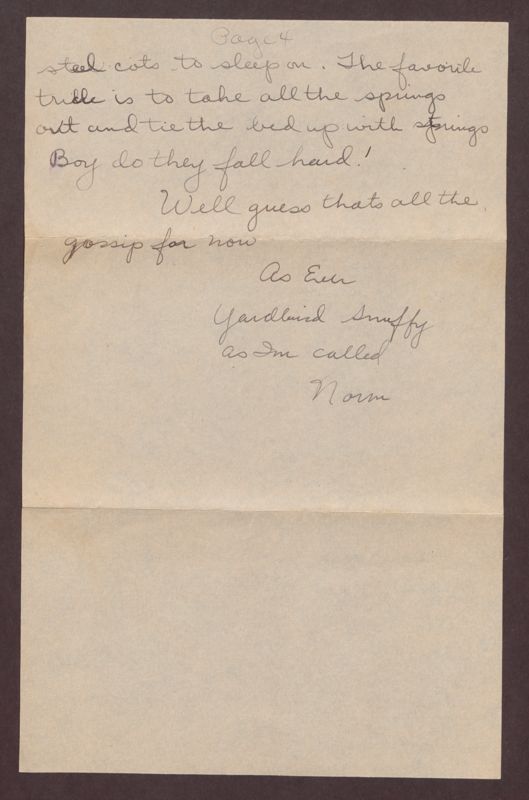 Page 4
steel cots to sleep on. The favorite
trick is to take all the springs
out and tie the bed up with springs
Boy do they fall hard!
Well guess thats all the
gossip for now
As Ever
Yardbird Snuffy
as Im called
Norm